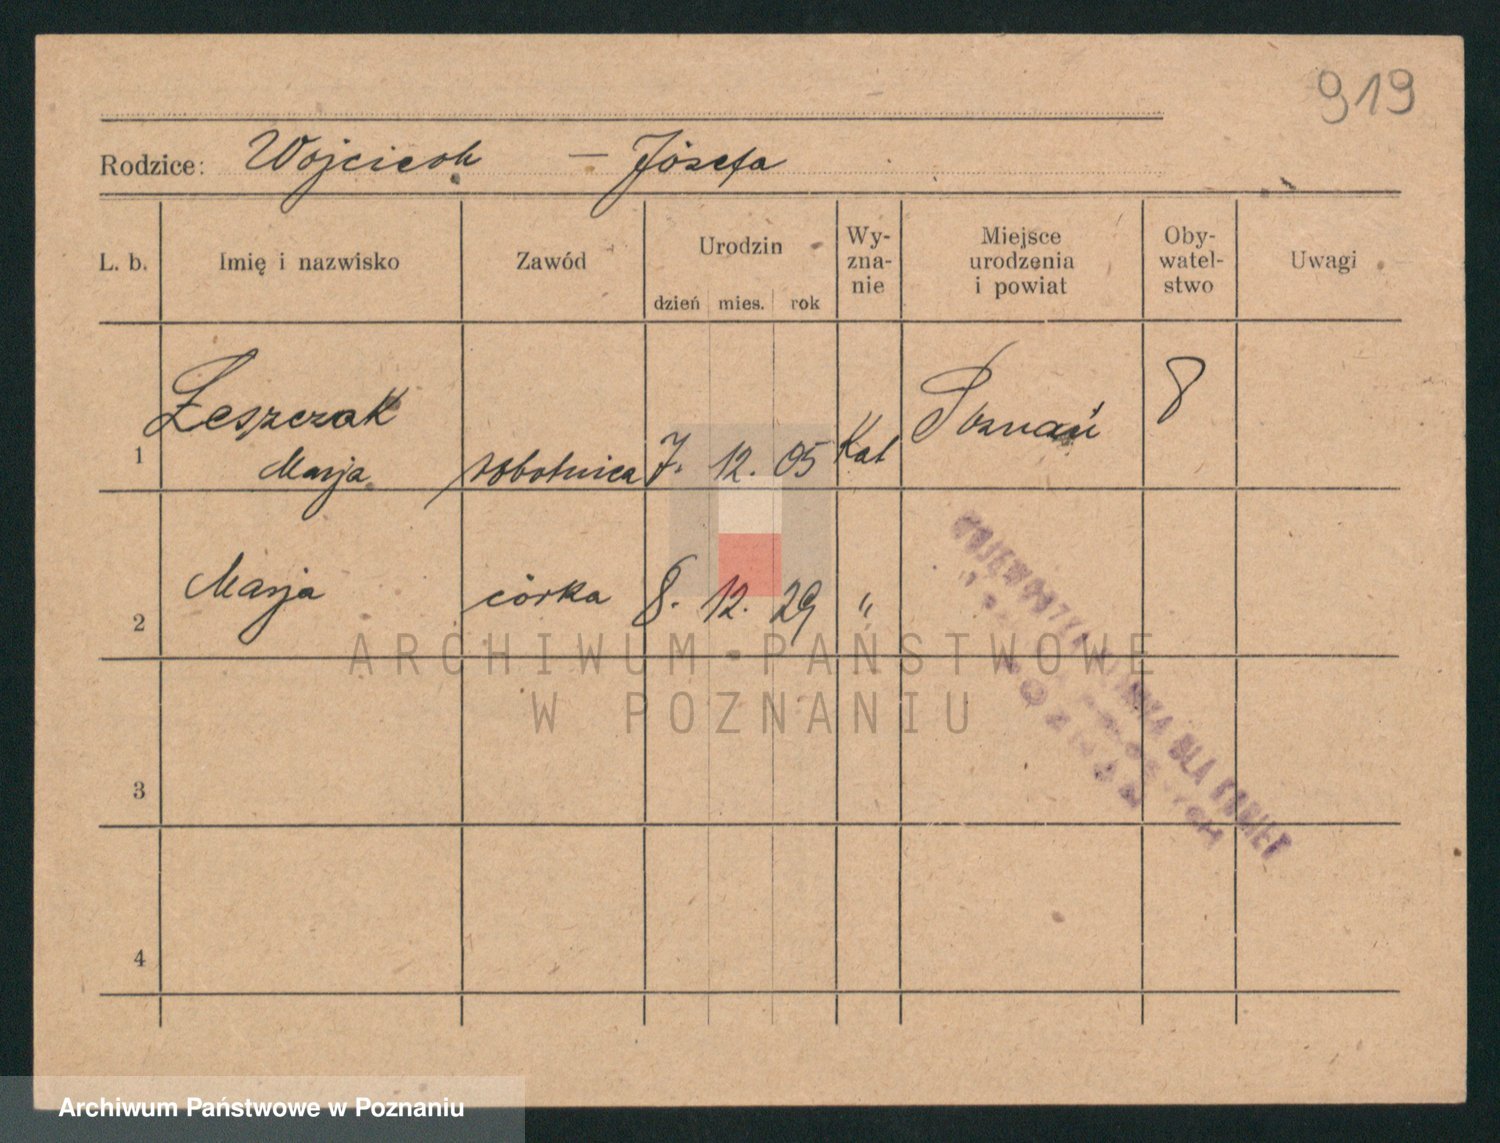 919
Rodzice: Wojciech — Józefa
L. b. Imię i nazwisko Zawód Urodzin dzień mies. rok Wy-zna-nie Miejsce urodzenia i powiat Oby-watel-stwo Uwagi
1 Leszczak Marja robotnica 7. 12. 05 Kat Poznań
2 Marja córka 8. 12. 29 "
3
4
DLA KOBIET
ARCHIWUM PAŃSTWOWE
W POZNANIU
Archiwum Państwowe w Poznaniu